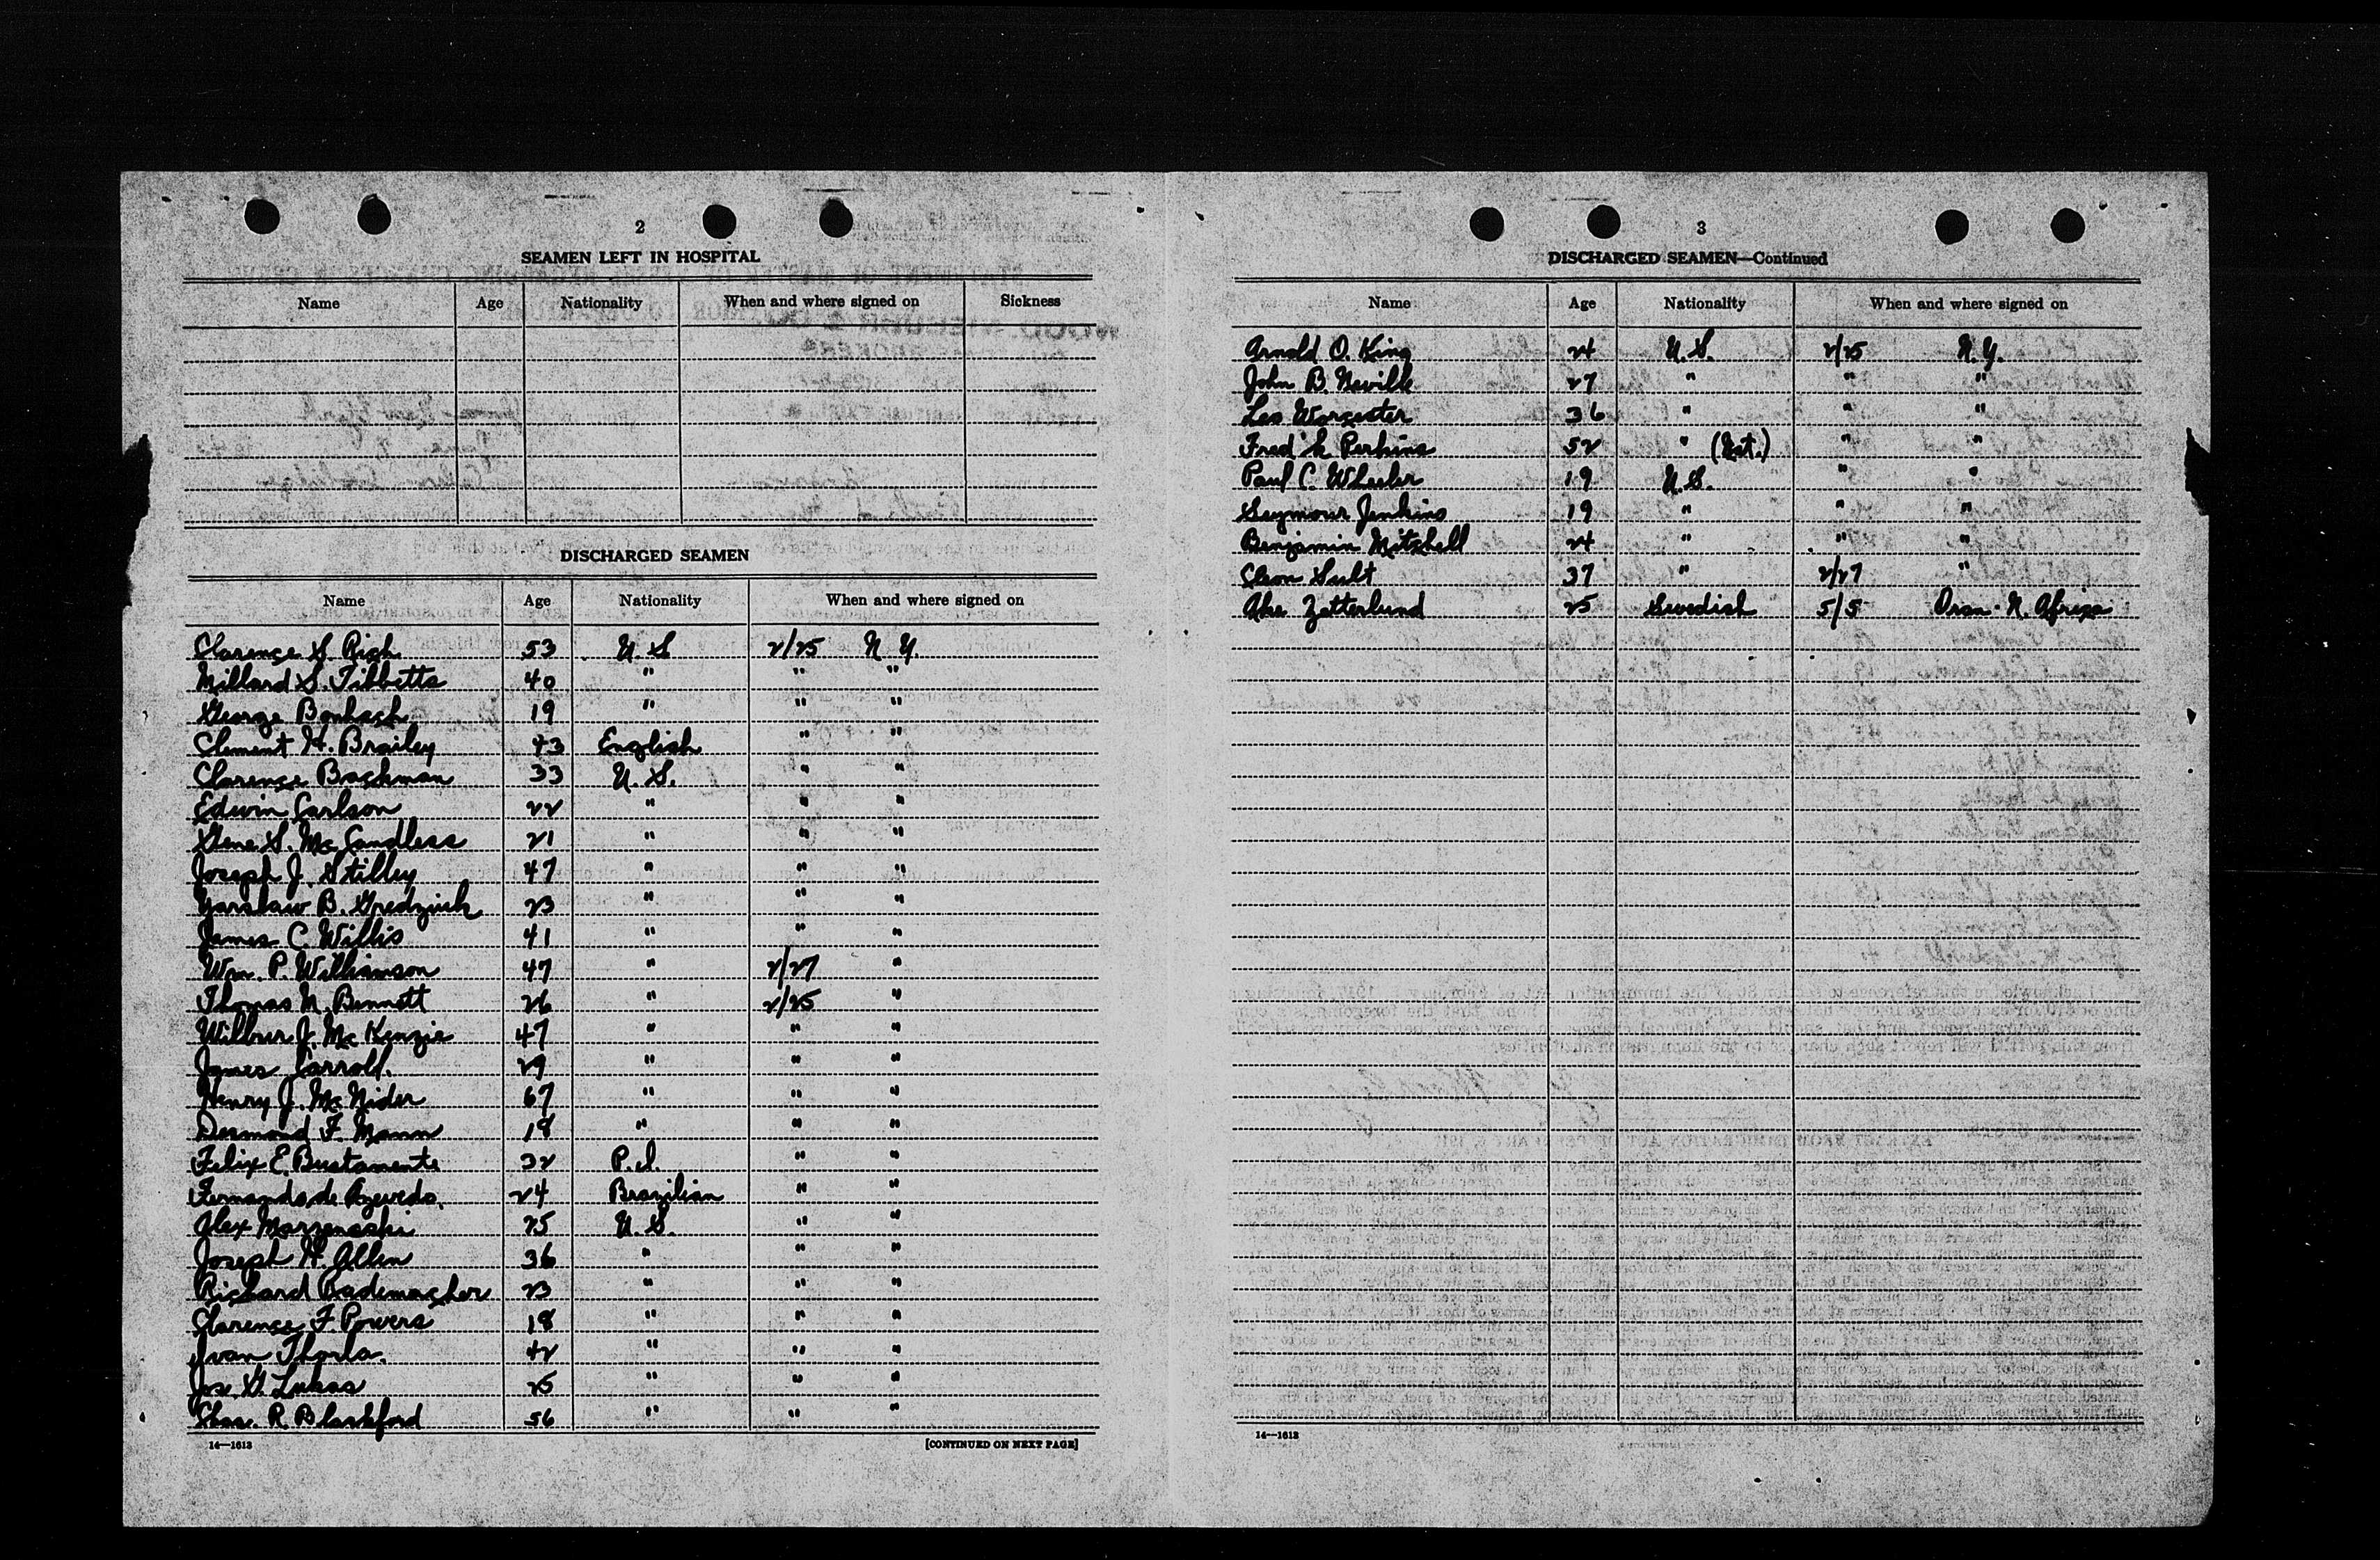 2
SEAMEN LEFT IN HOSPITAL
Name Age Nationality When and where signed on Sickness
DISCHARGED SEAMEN
Name Age Nationality When and where signed on
Clarence S. Rich 53 U.S. 2/25 N.Y.
Millard S. Tibbetts 40 " " "
George Bonhach 19 " " "
Clement H. Brailey 43 English " "
Clarence Bachman 33 U.S. " "
Edwin Carlson 22 " " "
Gene S. McCandless 21 " " "
Joseph J. Stilley 47 " " "
Yarslaw B. 23 " " "
James C. Willis 41 " " "
Wm. P. Williamson 47 " 2/27 "
Thomas N. Bennett 26 " 2/25 "
Wilbur J. McKenzie 47 " " "
James Carroll. 29 " " "
Henry J. McNider 67 " " "
Desmond F. Mann 18 " " "
Felix E. Bustamente 32 P.I. " "
Fernando de Azevedo. 24 Brazilian " "
Alex 25 U.S. " "
Joseph H. Allen 36 " " "
Richard Rademacher 23 " " "
Clarence F. Powers 18 " " "
Ivan Thorla. 42 " " "
Jos. G. Lukas 25 " " "
Chas. R. Blackford 56 " " "
14—1613 [CONTINUED ON NEXT PAGE]
3
DISCHARGED SEAMEN—Continued
Name Age Nationality When and where signed on
Arnold O. King 24 U.S. 2/25 N.Y.
John B. Neville 27 " " "
Leo Worcester 36 " " "
Fred'k Perkins 52 " (Nat.) " "
Paul C. Wheeler 19 U.S. " "
Seymour Jenkins 19 " " "
Benjamin Mitchell 24 " " "
Cleon Sult 37 " 2/27 "
Ake Zetterlund 25 Swedish 5/5 Oran - N. Africa
14—1613